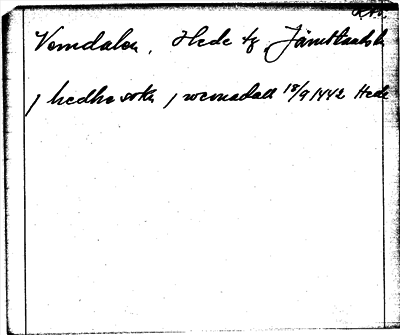 Vemdalen, Hede tg Jämtlands l.
j hedhe sokn j wemadall 18/9 1442 Hede